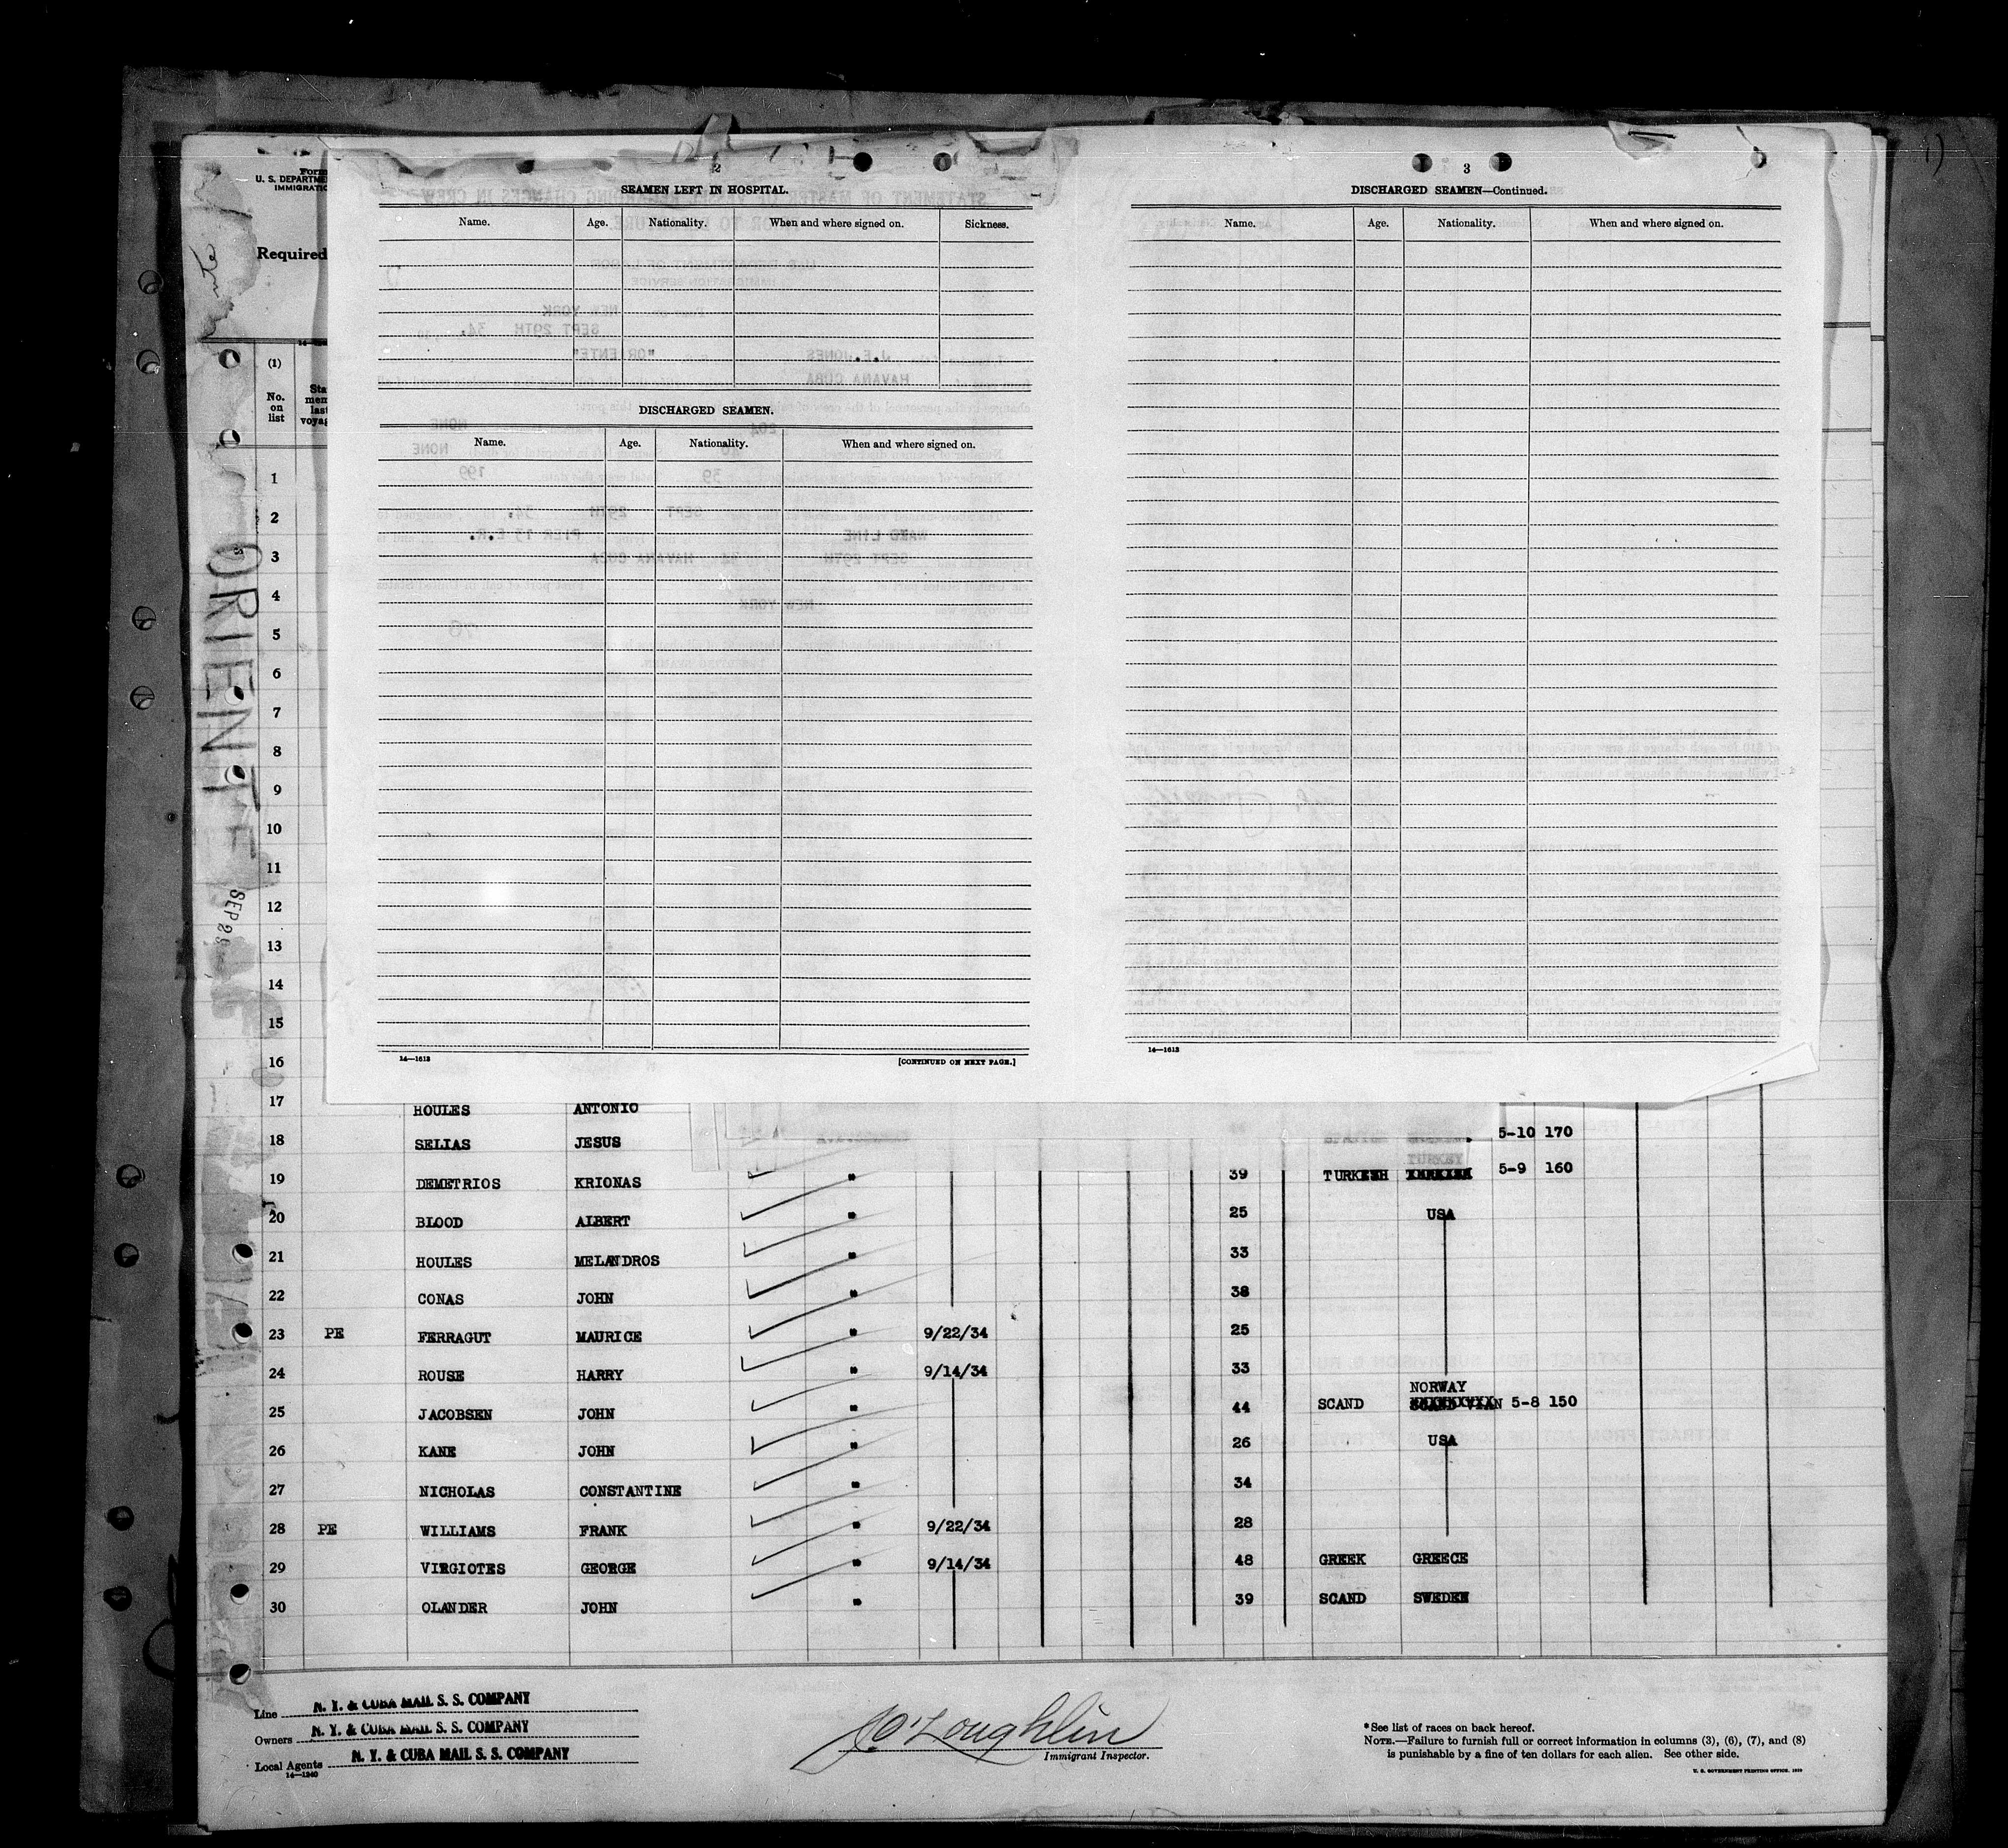 2
SEAMEN LEFT IN HOSPITAL.
Name. Age. Nationality. When and where signed on. Sickness.
DISCHARGED SEAMEN.
Name. Age. Nationality. When and where signed on.
14—1613
[CONTINUED ON NEXT PAGE.]
3
DISCHARGED SEAMEN—Continued.
Name. Age. Nationality. When and where signed on.
14—1613
Form
U. S. DEPARTM
IMMIGRATIO
Required
(1)
No. on list
ORIENTE
SEP 29
1
2
3
4
5
6
7
8
9
10
11
12
13
14
15
16
17 HOULES ANTONIO
18 SELIAS JESUS 5-10 170
19 DEMETRIOS KRIONAS " 39 TURKISH TURKEY 5-9 160
20 BLOOD ALBERT " 25 USA
21 HOULES MELANDROS " 33
22 CONAS JOHN " 38
23 PE FERRAGUT MAURICE " 9/22/34 25
24 ROUSE HARRY " 9/14/34 33
25 JACOBSEN JOHN " 44 SCAND NORWAY 5-8 150
26 KANE JOHN " 26 USA
27 NICHOLAS CONSTANTINE " 34
28 PE WILLIAMS FRANK " 9/22/34 28
29 VIRGIOTES GEORGE " 9/14/34 48 GREEK GREECE
30 OLANDER JOHN " 39 SCAND SWEDEN
Line N. Y. & CUBA MAIL S. S. COMPANY
Owners N. Y. & CUBA MAIL S. S. COMPANY
Local Agents N. Y. & CUBA MAIL S. S. COMPANY
14—1240
O'Loughlin
Immigrant Inspector.
*See list of races on back hereof.
NOTE.—Failure to furnish full or correct information in columns (3), (6), (7), and (8)
is punishable by a fine of ten dollars for each alien. See other side.